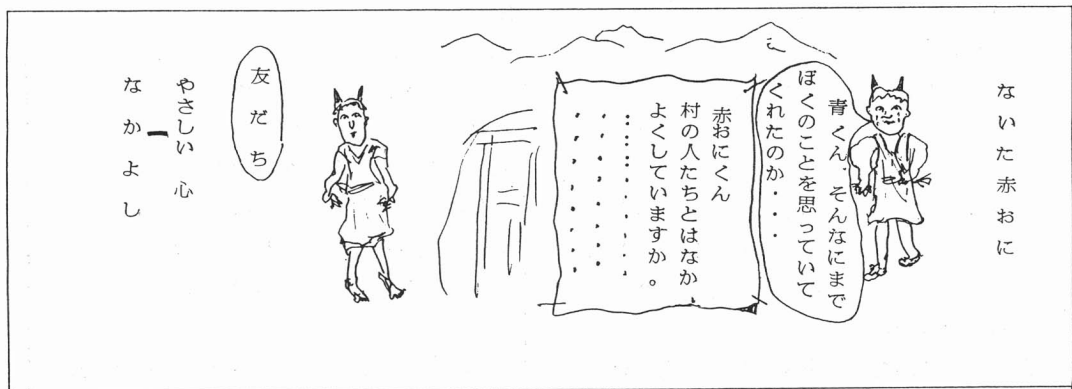 ないた赤おに
青くん、そんなにまで
ぼくのことを思っていて
くれたのか・・・
赤おにくん
村の人たちとはなか
よくしていますか。
友だち
やさしい心
なかよし